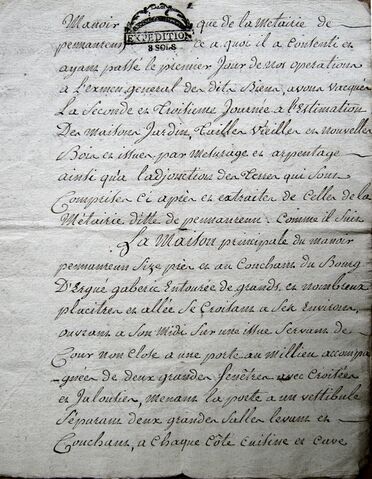 Manoir que de la Metairie de
EXPEDITION
8 SOLS
pennanreun ce a quoi il a Consenti et
ayant passé le premier Jour de nos operations
a L'exmen general des dits Biens, avons vacqué
La Seconde et Troisieme Journée a l'Estimation
Des maisons Jardin, Tailles Vieilles et nouvelles
Bois et issues par mesurage et arpentage
ainsi que l'adjonction des Terres qui sont
Comprises Ci apres et extraites de Celles de la
Métairie ditte de pennanreun. Comme il suit
La Maison principale du manoir
pennanreun Size près et au Couchant du Bourg
D'Ergué gaberic Entourée de grands et nombreux
placitres et allée se Croisant a Ses Environs
ouvrant a Son Midi Sur une issue Servant de
Cour non Close a une porte au Millieu accompa
gnées de deux grandes fenêtres avec Croisées
et Jalousies, menant la porte a un vestibule
Séparant deux grandes Salles levant et
Couchant, a Chaque Côté Cuisine et Cave